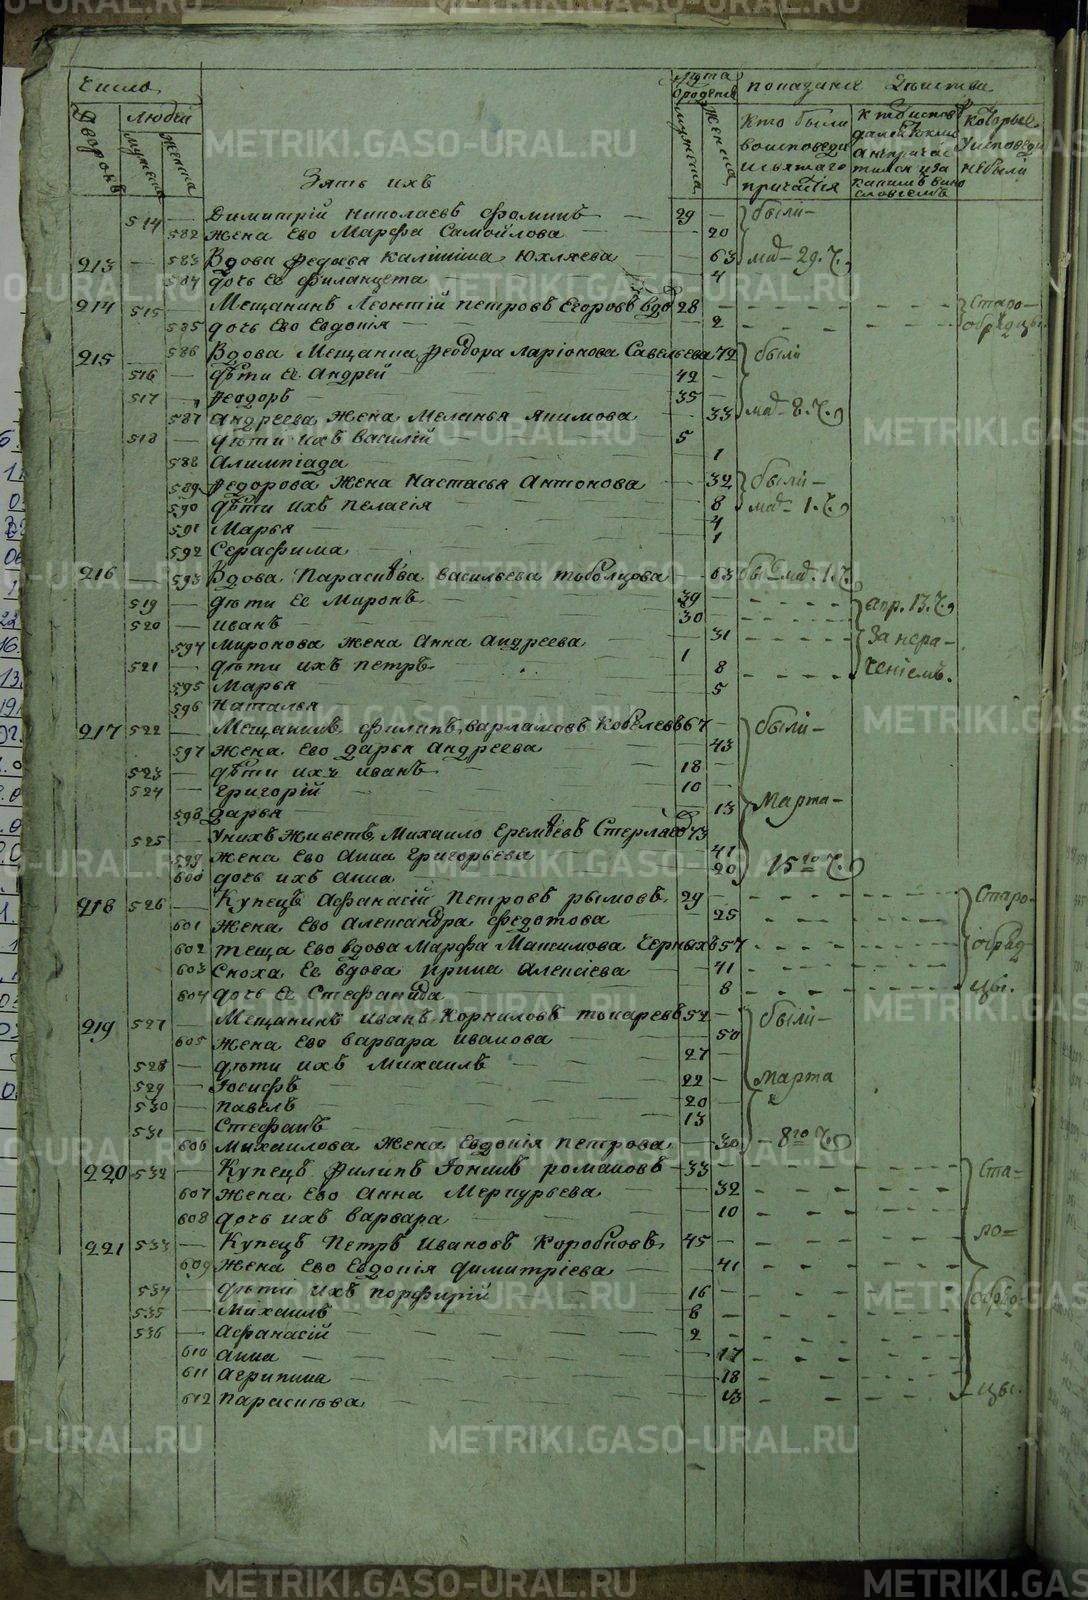 Число
Лѣта
показаніе Дѣиства
Дворовъ
Людей
мужеска
женска
Кто были
во исповеди
и святаго
причастія
Которые
у исповеди
не были
Зять ихъ
514 — Димитрій Николаевъ Фоминъ — 29 — были
582 Жена Ево Марфа Самойлова — 20
213 — 583 Вдова Федосья Калинина Юхляева — 63 ма. 29. Ч.
584 дочь Ее Филанцета — 4
214 515 — Мещанинъ Леонтій Петровъ Егоровъ вдо 28 — Старо-
585 дочь Ево Евдокія — 2 обрядцы
215 586 Вдова Мещанка Феодора Ларіонова Савельева 72 были
516 — дѣти Ее Андрей — 42 —
517 — Феодоръ — 35 —
587 Андреева Жена Меланья Якимова — 33 ма. 8. Ч.
518 — дѣти ихъ Василій — 5
588 Алимпіада — 1
589 Федорова Жена Настасья Антонова — 32 были
590 дѣти ихъ Пелагія — 8 ма. 1. Ч.
591 Марья — 4
592 Серафима — 1
216 — 593 Вдова Параскѣва Васильева Тоболцова — 63 бы ма. 1. Ч.
519 — дѣти Ее Миронъ — 39 — апр. 13. Ч.
520 — Иванъ — 30
594 Миронова Жена Анна Андреева — 31 За нера-
521 — дѣти ихъ Петръ — 1 ченіемъ.
595 Марья — 8
596 Наталья — 5
217 522 — Мещанинъ Филипъ Варламовъ Кобелевъ 67 — были
597 Жена Ево Дарья Андреева — 43
523 — дѣти ихъ Иванъ — 18 —
524 — Григорій — 10 —
598 Дарья — 13 Марта
525 — У нихъ Живетъ Михаило Еремѣевъ Стерлягов 73
599 Жена Ево Анна Григорьева — 41 15го Ч.
600 дочь ихъ Анна — 20
218 526 — Купецъ Афанасій Петровъ Рымовъ 29 — Старо-
601 Жена Ево Александра Федотова — 25
602 теща Ево вдова Марфа Максимова Черныхъ 57 обряд-
603 Сноха Ее вдова Ирина Алексіева — 41
604 дочь Ее Стефанида — 8 цы.
219 527 — Мещанинъ Иванъ Корниловъ Токаревъ 52 — были
605 Жена Ево Варвара Иванова — 50
528 — дѣти ихъ Михаилъ — 27 —
529 — Іосифъ — 22 — Марта
530 — Павелъ — 20 —
531 — Стефанъ — 13
606 Михаилова Жена Евдокія Петрова — 30 8го Ч.
220 532 — Купецъ Филипъ Іонинъ Романовъ — 33 — Ста-
607 Жена Ево Анна Меркурьева — 32
608 дочь ихъ Варвара — 10
221 533 — Купецъ Петръ Ивановъ Коробковъ 45 — ро-
609 Жена Ево Евдокія Димитріева — 41
534 — дѣти ихъ Порфирій — 16 — обряд-
535 — Михаилъ — 8 —
536 — Афанасій — 2 —
610 Анна — 17
611 Агрипина — 18 цы.
612 Параскѣва — 13